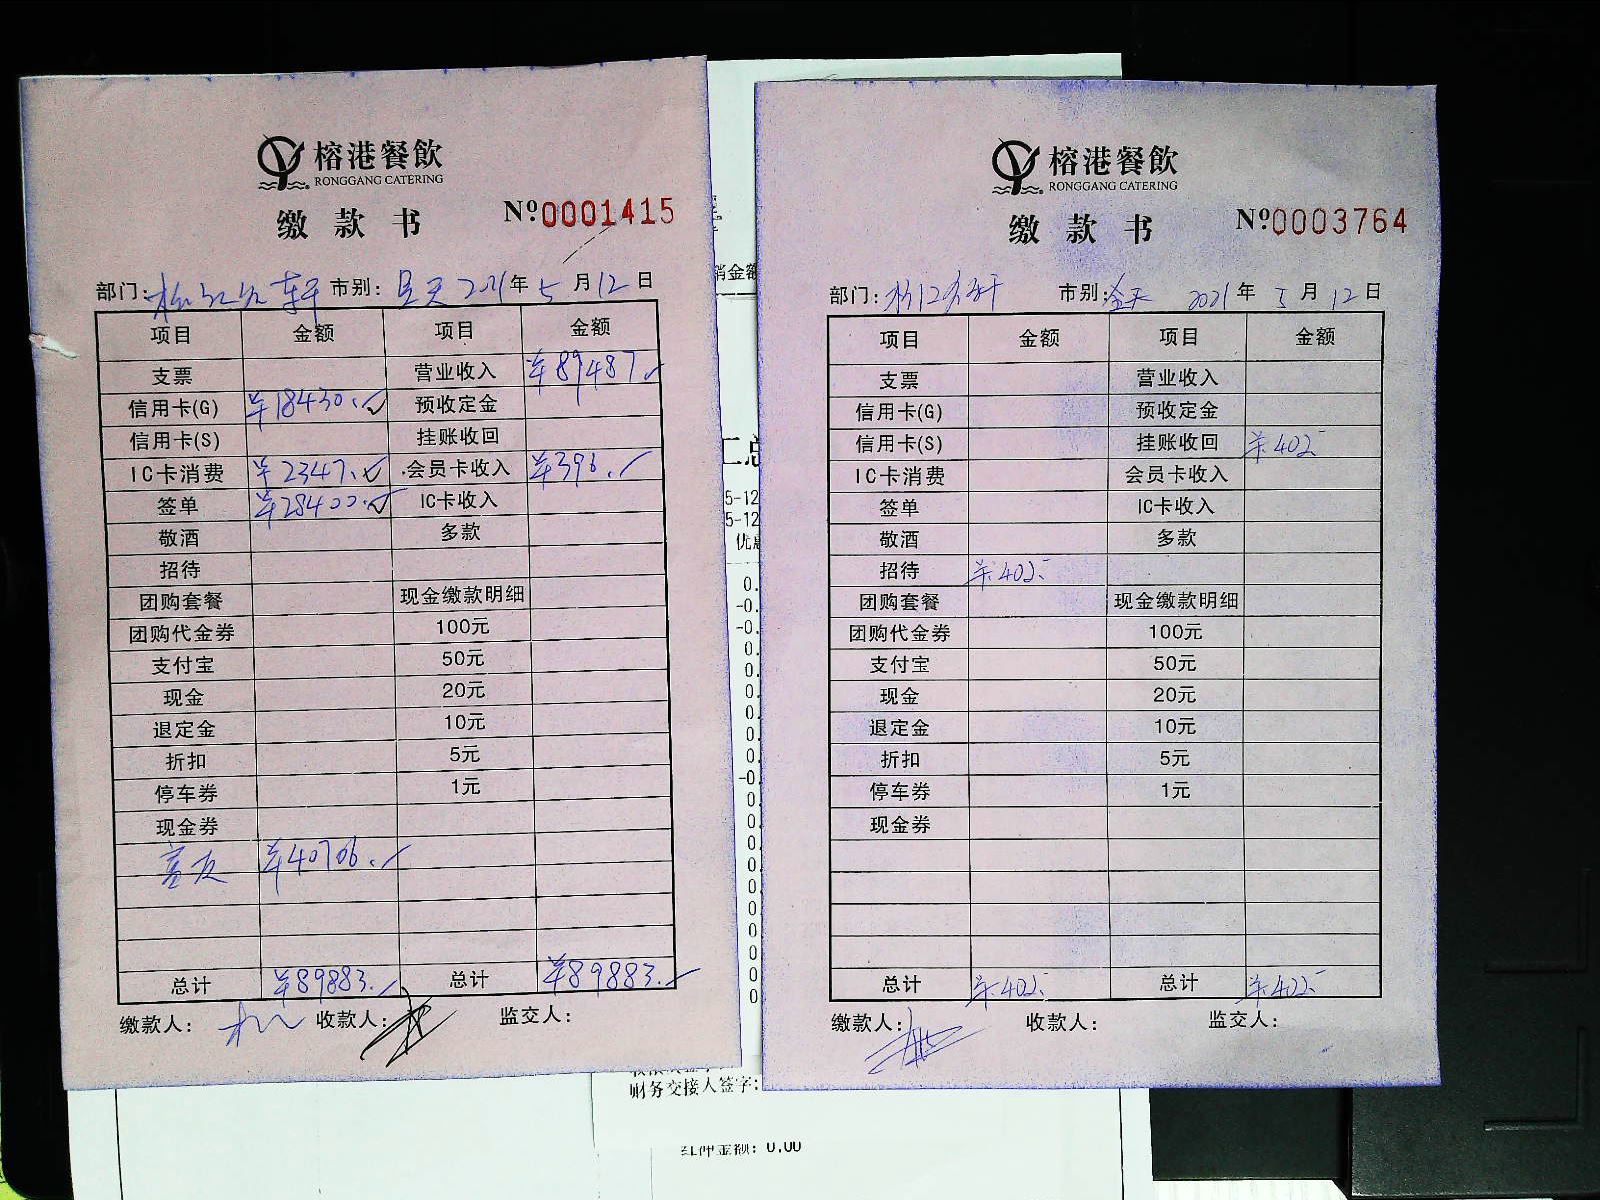 榕港餐飲
RONGGANG CATERING
缴款书 Nº0001415
部门: 市别: 全天 2021年5月12日
项目 金额 项目 金额
支票 营业收入 ¥89487.
信用卡(G) ¥18430. 预收定金
信用卡(S) 挂账收回
IC卡消费 ¥2347. 会员卡收入 ¥396.
签单 ¥28400. IC卡收入
敬酒 多款
招待
团购套餐 现金缴款明细
团购代金券 100元
支付宝 50元
现金 20元
退定金 10元
折扣 5元
停车券 1元
现金券
¥40706.
总计 ¥89883. 总计 ¥89883.
缴款人: 收款人: 监交人:
榕港餐飲
RONGGANG CATERING
缴款书 Nº0003764
部门: 市别: 全天 2021年5月12日
项目 金额 项目 金额
支票 营业收入
信用卡(G) 预收定金
信用卡(S) 挂账收回 ¥402.
IC卡消费 会员卡收入
签单 IC卡收入
敬酒 多款
招待 ¥402.
团购套餐 现金缴款明细
团购代金券 100元
支付宝 50元
现金 20元
退定金 10元
折扣 5元
停车券 1元
现金券
总计 ¥402. 总计 ¥402.
缴款人: 收款人: 监交人:
销金额
5-12
5-12
财务交接人签字:
红冲金额: 0.00